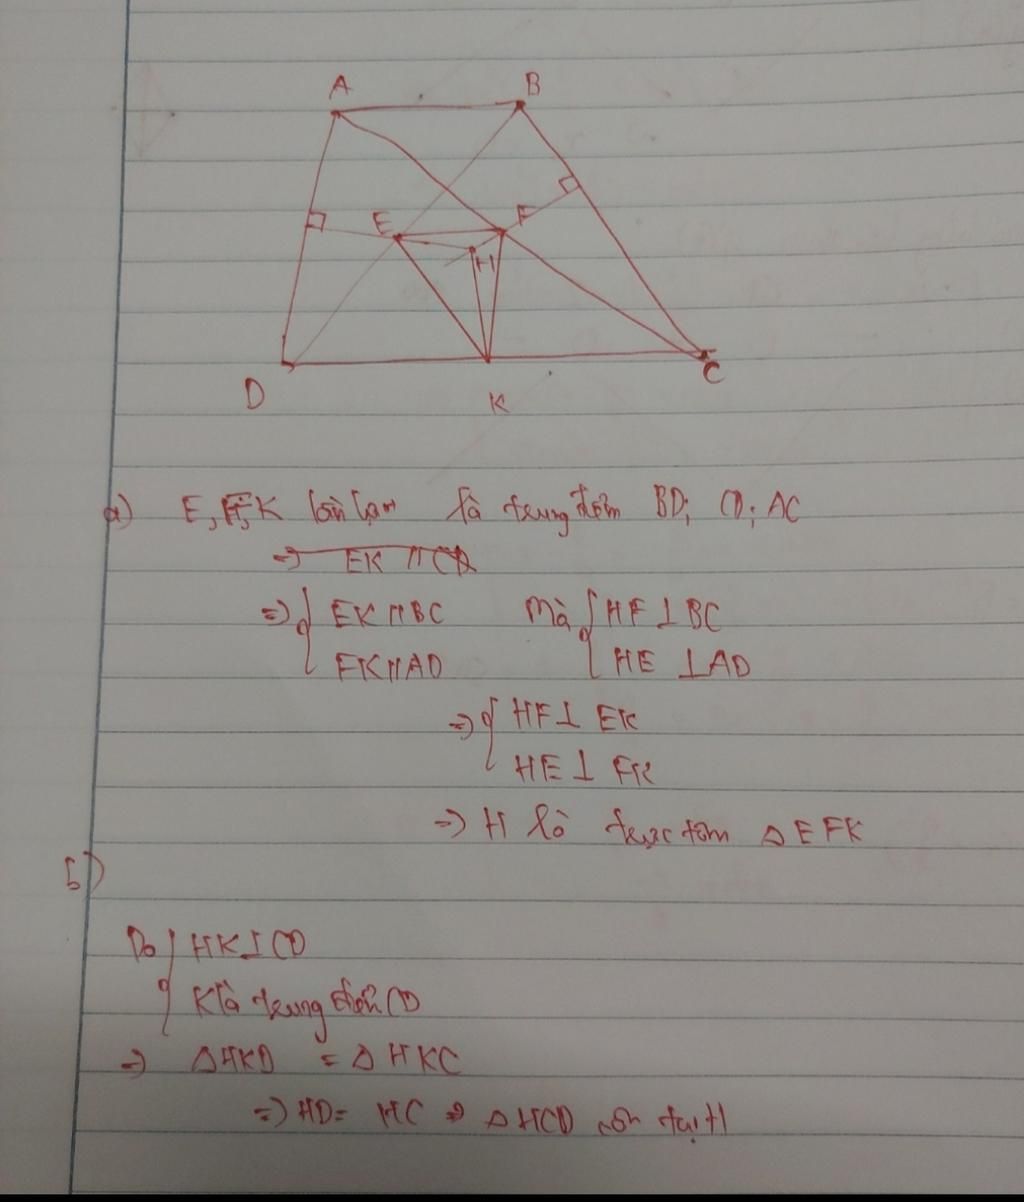 A B
E F
H
D K C
a) E, F, K lần lượt là trung điểm BD; CD; AC
=> EK // CD
=> { EK // BC Mà { HF ⊥ BC
FK // AD HE ⊥ AD
=> { HF ⊥ EK
HE ⊥ FK
=> H là trực tâm Δ EFK
b)
Do { HK ⊥ CD
K là trung điểm CD
=> Δ HKD = Δ HKC
=> HD = HC => Δ HCD cân tại H